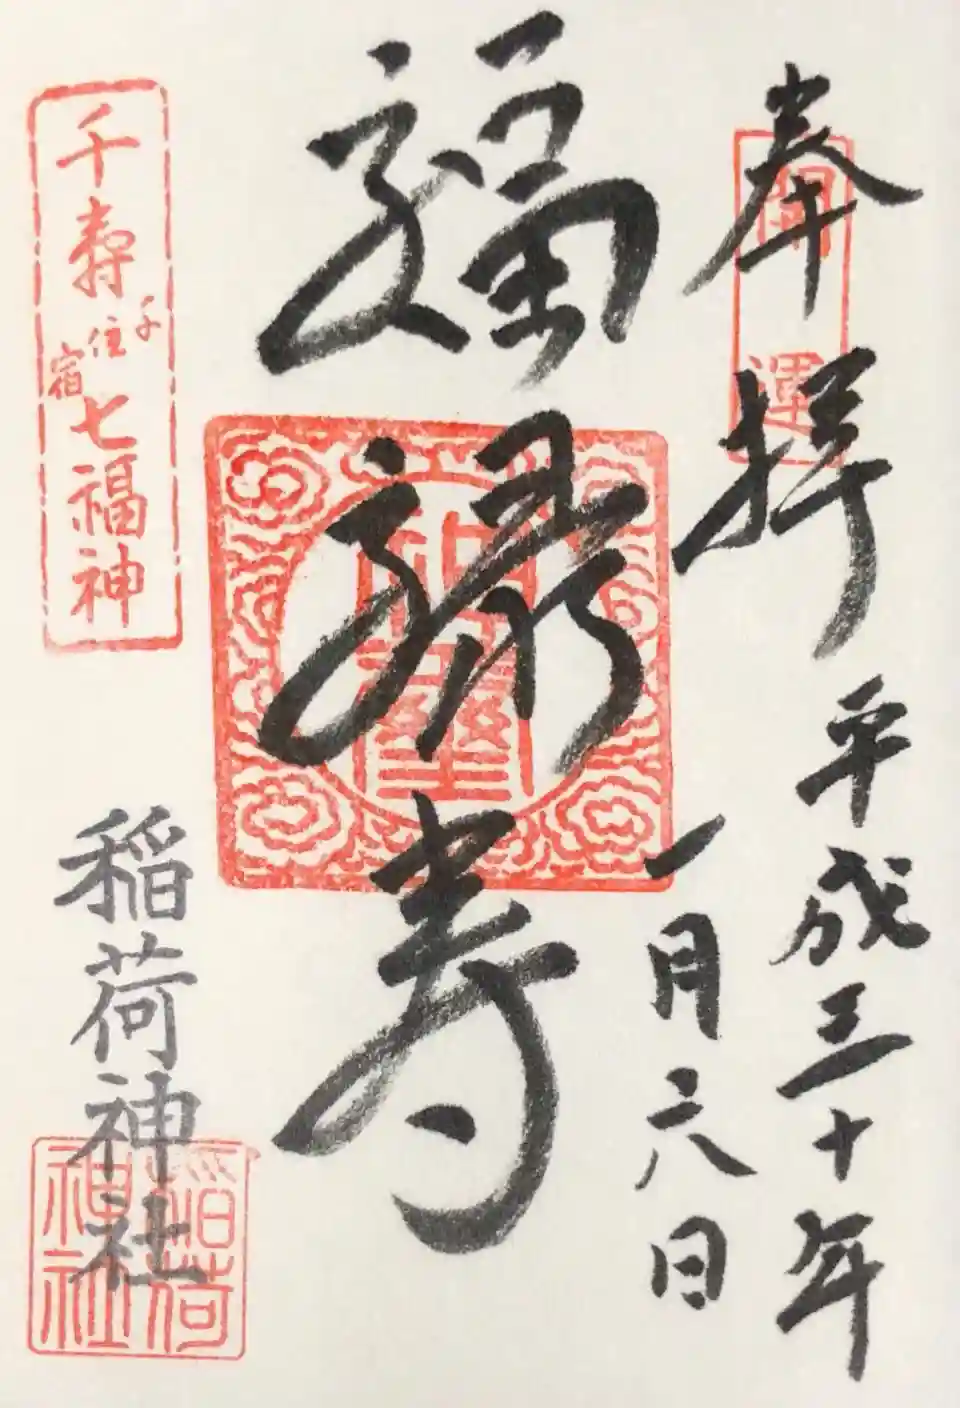 奉拝
開運
平成三十年
一月六日
福禄寿
千寿七福神
千住宿
稲荷神社
稲荷神社